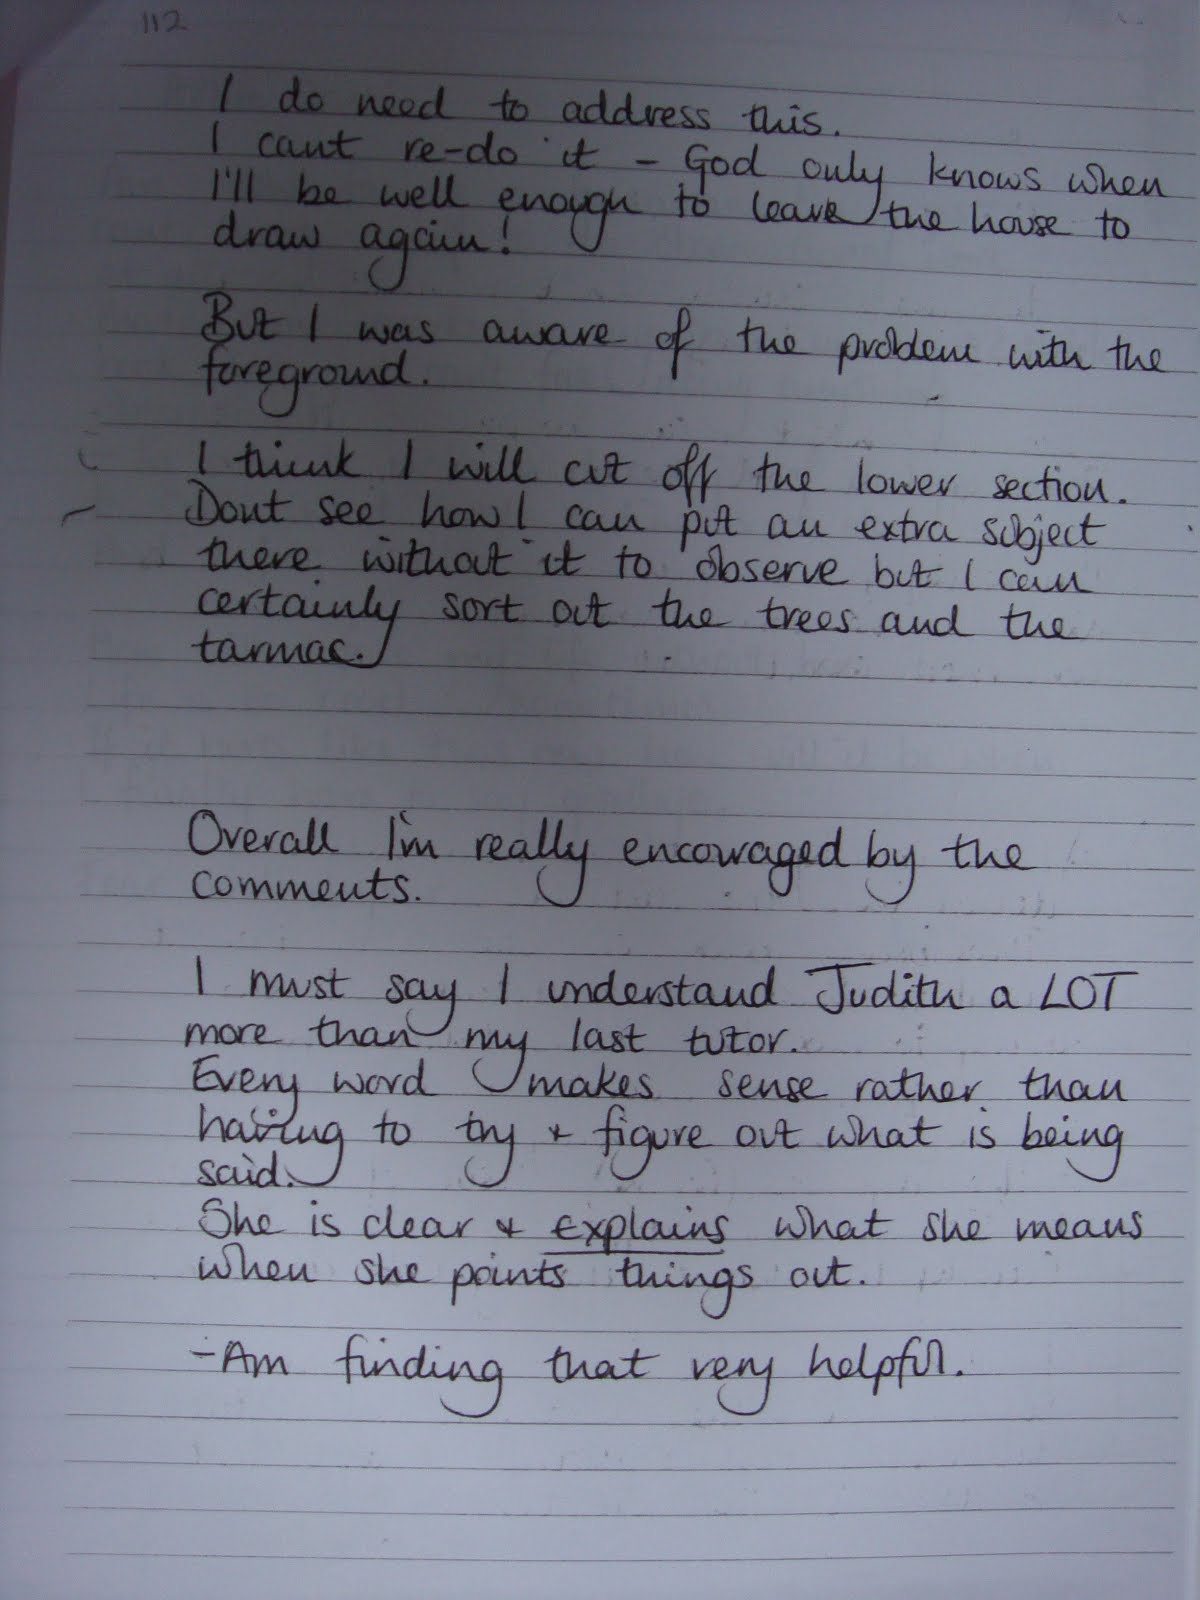 112
I do need to address this.
I cant re-do it - God only knows when
I'll be well enough to leave the house to
draw again!
But I was aware of the problem with the
foreground.
I think I will cut off the lower section.
Dont see how I can put an extra subject
there without it to observe but I can
certainly sort out the trees and the
tarmac.
Overall I'm really encouraged by the
comments.
I must say I understand Judith a LOT
more than my last tutor.
Every word makes sense rather than
having to try + figure out what is being
said.
She is clear + explains what she means
when she points things out.
-Am finding that very helpful.